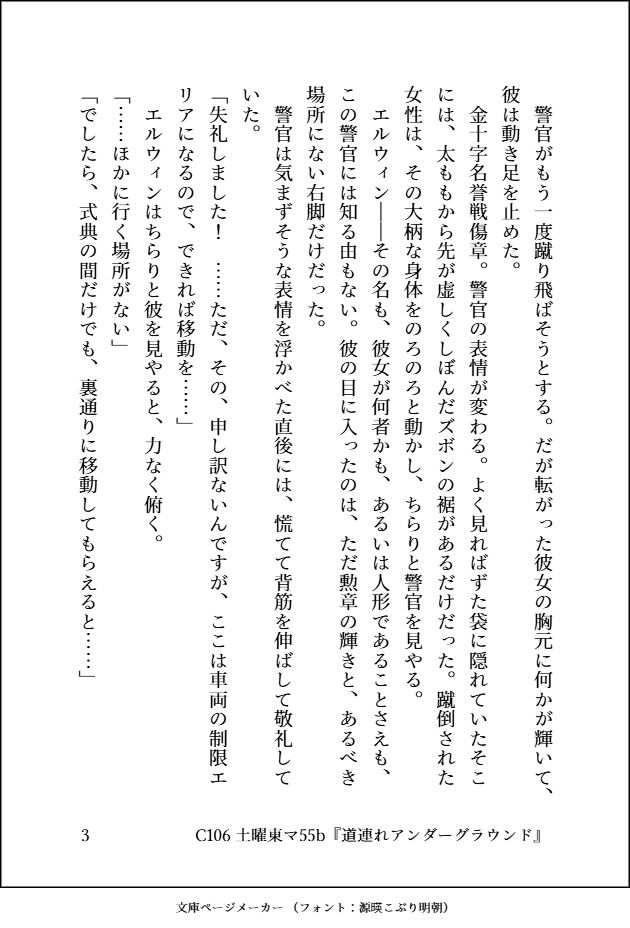 警官がもう一度蹴り飛ばそうとする。だが転がった彼女の胸元に何かが輝いて、
彼は動き足を止めた。
　金十字名誉戦傷章。警官の表情が変わる。よく見ればずた袋に隠れていたそこ
には、太ももから先が虚しくしぼんだズボンの裾があるだけだった。蹴倒された
女性は、その大柄な身体をのろのろと動かし、ちらりと警官を見やる。
　エルウィン――その名も、彼女が何者かも、あるいは人形であることさえも、
この警官には知る由もない。彼の目に入ったのは、ただ勲章の輝きと、あるべき
場所にない右脚だけだった。
　警官は気まずそうな表情を浮かべた直後には、慌てて背筋を伸ばして敬礼して
いた。
「失礼しました！　……ただ、その、申し訳ないんですが、ここは車両の制限エ
リアになるので、できれば移動を……」
　エルウィンはちらりと彼を見やると、力なく俯く。
「……ほかに行く場所がない」
「でしたら、式典の間だけでも、裏通りに移動してもらえると……」
C106 土曜東マ55b『道連れアンダーグラウンド』
3
文庫ページメーカー （フォント：源暎こぶり明朝）